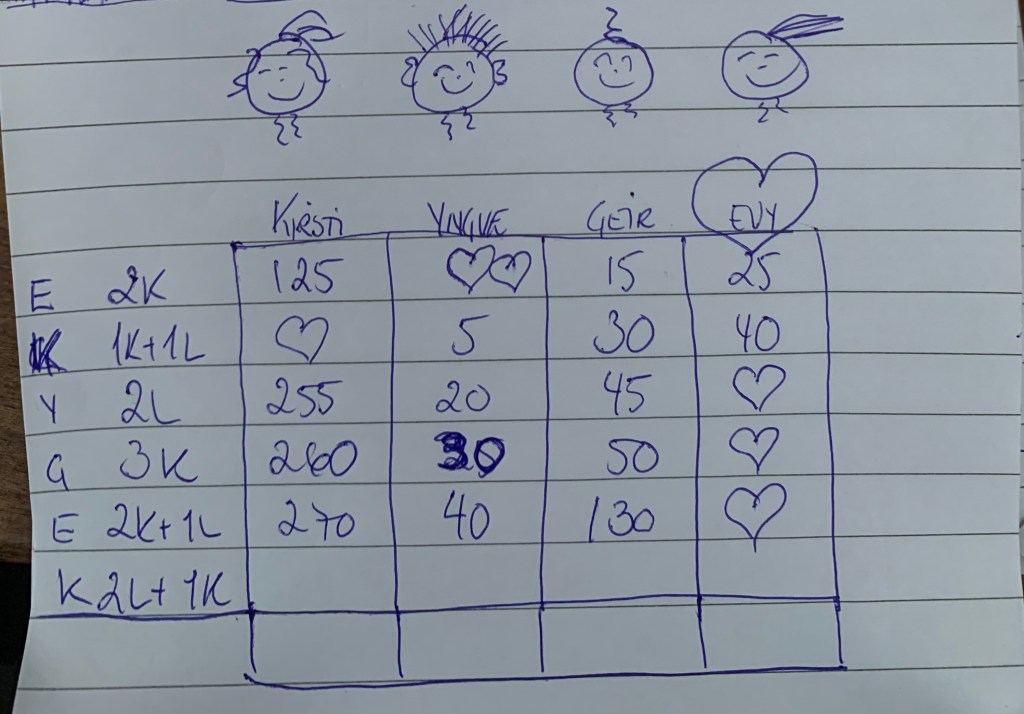 Kjrsti YNGVE GEIR EVY
E 2K 125 ♡♡ 15 25
K 1K+1L ♡ 5 30 40
Y 2L 255 20 45 ♡
G 3K 260 30 50 ♡
E 2K+1L 270 40 130 ♡
K 2L+1K